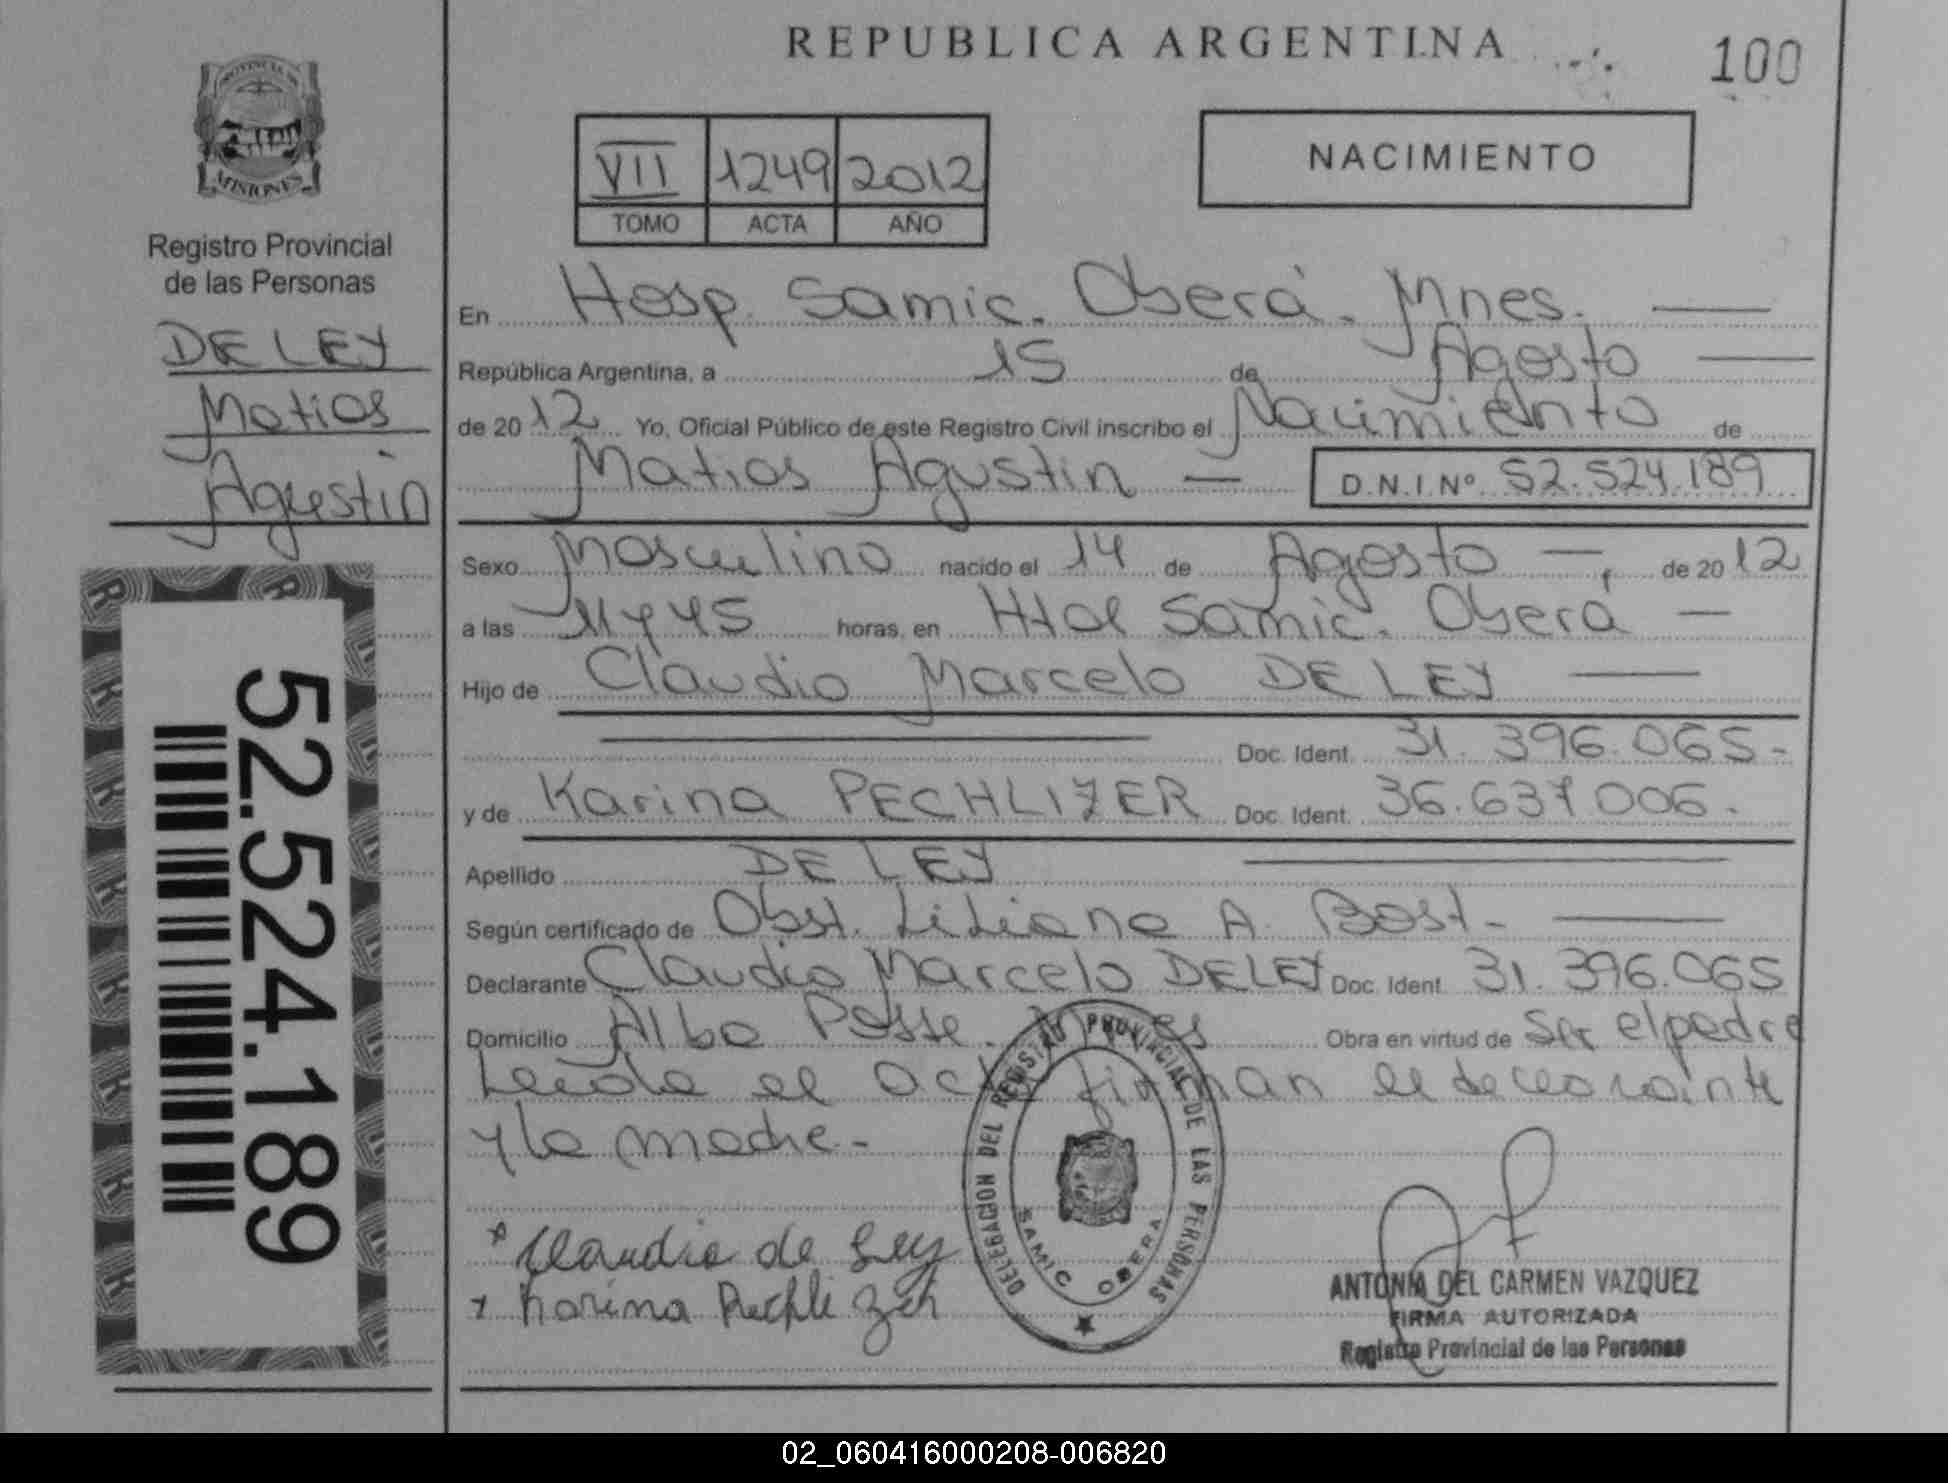 REPUBLICA ARGENTINA
100
PROVINCIA DE
MISIONES
Registro Provincial
de las Personas
DE LEY
Matias
Agustin
VII 1249 2012
TOMO ACTA AÑO
NACIMIENTO
En Hosp. Samic. Oberá. Mnes.
República Argentina, a 15 de Agosto
de 2012 Yo, Oficial Público de este Registro Civil inscribo el Nacimiento de
Matias Agustin — D.N.I.Nº 52.524.189
Sexo Masculino nacido el 14 de Agosto —, de 2012
a las 11 y 45 horas, en Htal Samic. Oberá —
Hijo de Claudio Marcelo DE LEY
Doc. Ident. 31.396.065-
y de Karina PECHLIZER Doc. Ident. 36.637.006.
Apellido DE LEY
Según certificado de Obst. Liliana A. Bost-
Declarante Claudio Marcelo DE LEY Doc. Ident. 31.396.065
Domicilio Alba Posse. Mnes Obra en virtud de Ser el padre
Leida el acta firman el declarante
y la madre.-
DELEGACION DEL REGISTRO PROVINCIAL DE LAS PERSONAS
SAMIC OBERA
Claudio de Ley
Karina Pechlizer
ANTONIA DEL CARMEN VAZQUEZ
FIRMA AUTORIZADA
Registro Provincial de las Personas
52.524.189
02_060416000208-006820